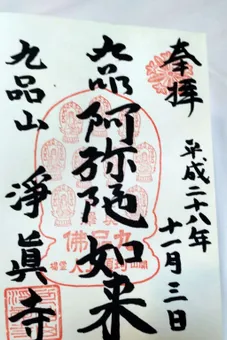 奉拝
平成二十八年
十一月三日
九品阿弥陀如来
九品佛
九品山
淨眞寺